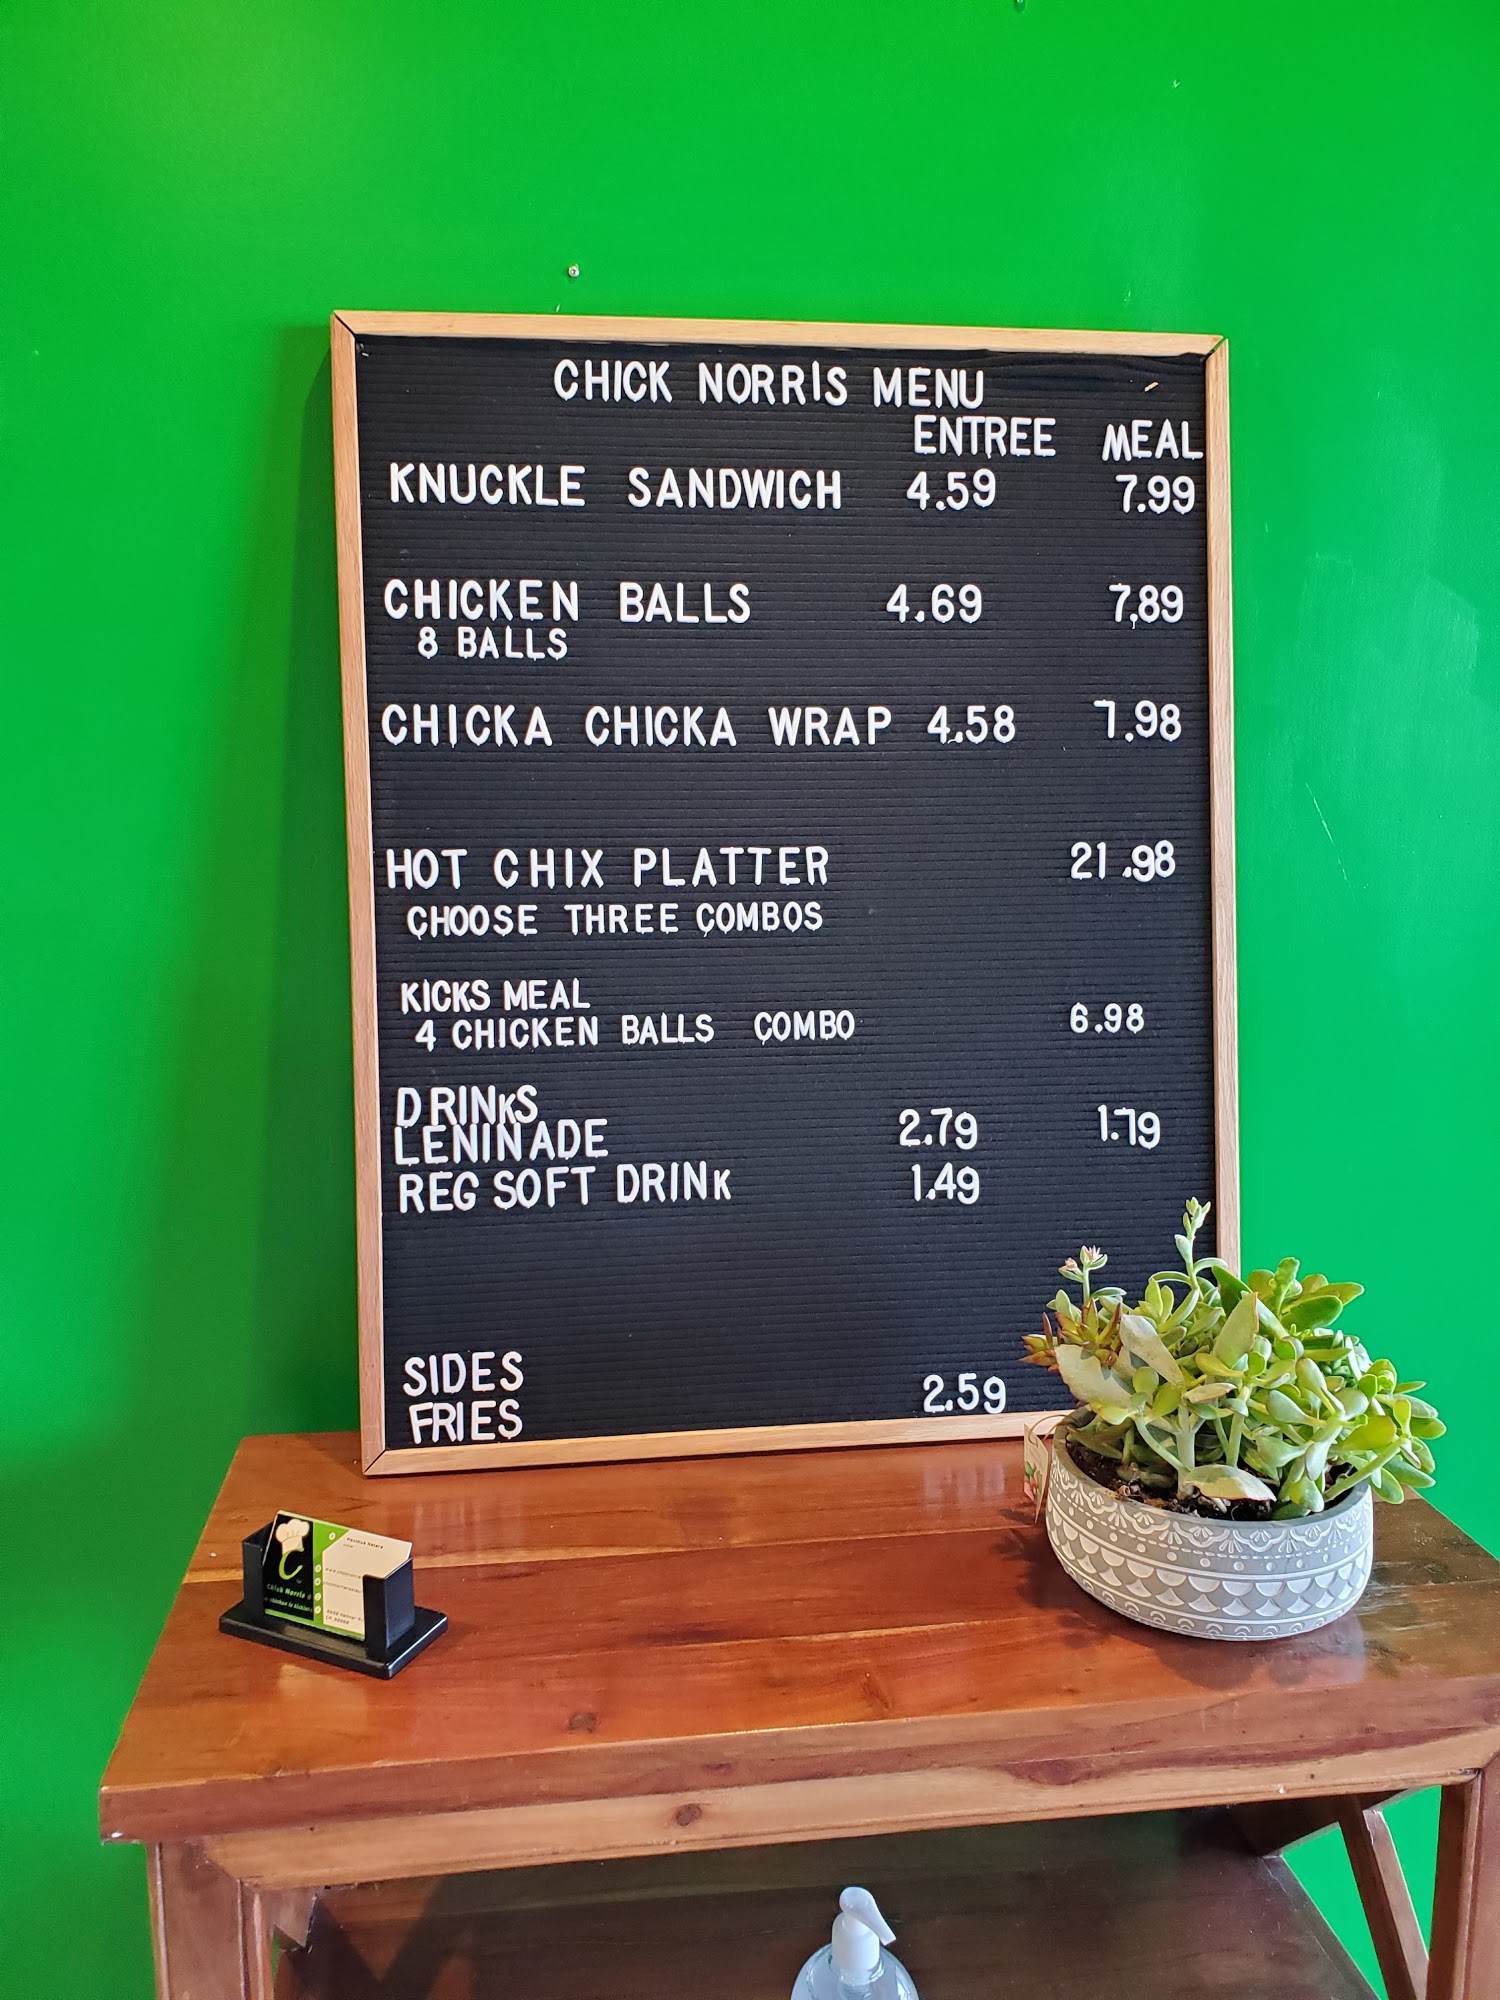 CHICK NORRIS MENU
ENTREE MEAL
KNUCKLE SANDWICH 4.59 7.99
CHICKEN BALLS 4.69 7,89
8 BALLS
CHICKA CHICKA WRAP 4.58 7.98
HOT CHIX PLATTER 21.98
CHOOSE THREE COMBOS
KICKS MEAL
4 CHICKEN BALLS COMBO 6.98
DRINKS
LENINADE 2.79 1.79
REG SOFT DRINK 1.49
SIDES
FRIES 2.59
C
Chick Norris